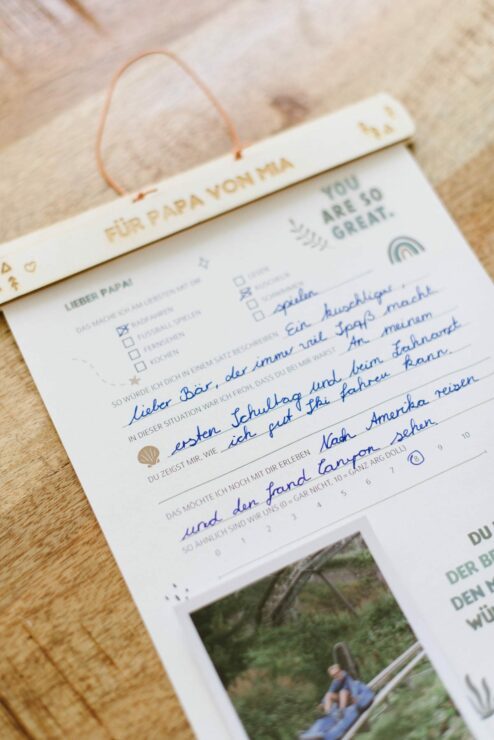 FÜR PAPA VON MIA
YOU
ARE SO
GREAT.
LIEBER PAPA!
DAS MACHE ICH AM LIEBSTEN MIT DIR
RADFAHREN
FUSSBALL SPIELEN
FERNSEHEN
KOCHEN
LESEN
KUSCHELN
SCHWIMMEN
spielen
SO WÜRDE ICH DICH IN EINEM SATZ BESCHREIBEN Ein kuschliger,
lieber Bär, der immer viel Spaß macht
IN DIESER SITUATION WAR ICH FROH, DASS DU BEI MIR WARST An meinem
ersten Schultag und beim Zahnarzt
DU ZEIGST MIR, WIE ich gut Ski fahren kann.
DAS MÖCHTE ICH NOCH MIT DIR ERLEBEN Nach Amerika reisen
und den Grand Canyon sehen
SO ÄHNLICH SIND WIR UNS (0 = GAR NICHT, 10 = GANZ ARG DOLL)
0 1 2 3 4 5 6 7 8 9 10
DU
DER
DEN